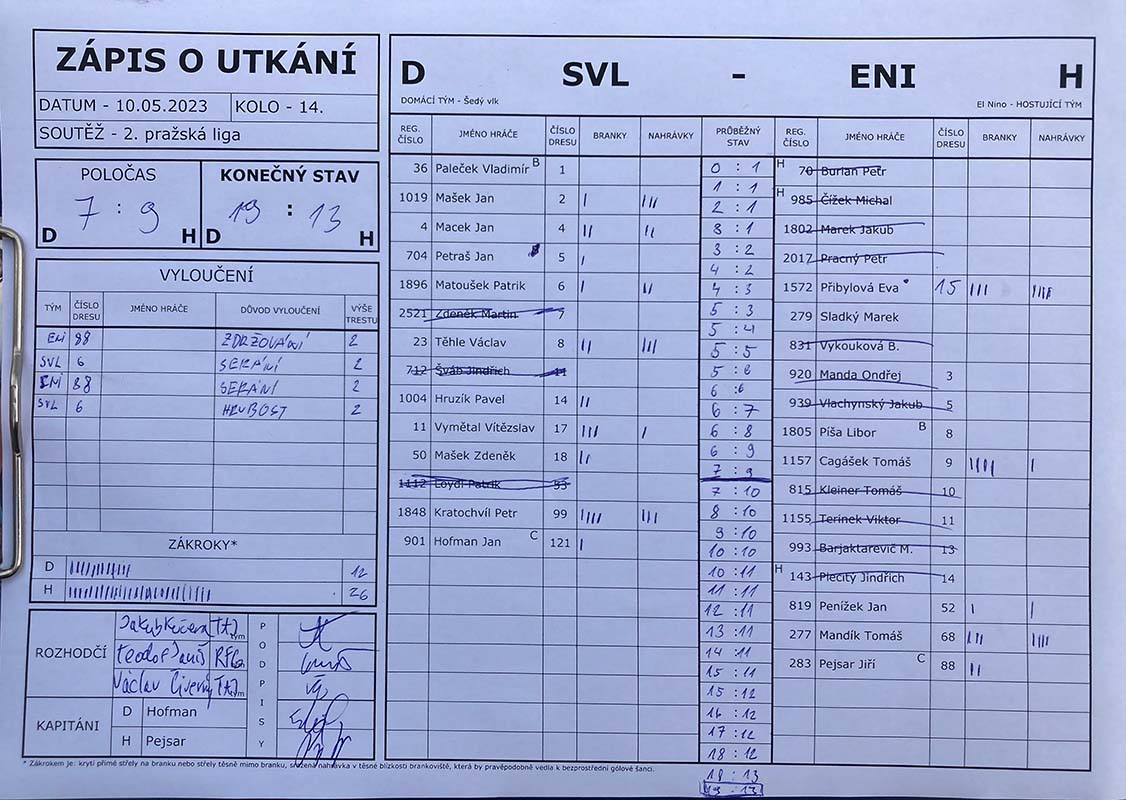 ZÁPIS O UTKÁNÍ
DATUM - 10.05.2023 KOLO - 14.
SOUTĚŽ - 2. pražská liga
POLOČAS KONEČNÝ STAV
7 : 9 19 : 13
D H D H
VYLOUČENÍ
TÝM ČÍSLO DRESU JMÉNO HRÁČE DŮVOD VYLOUČENÍ VÝŠE TRESTU
ENI 88 ZDRŽOVÁNÍ 2
SVL 6 SERÁNÍ 2
ENI 88 SERÁNÍ 2
SVL 6 HRUBOST 2
ZÁKROKY*
D 12
H 26
ROZHODČÍ
Jakub Kučera
Teodor
Václav
PODPISY
KAPITÁNI
D Hofman
H Pejsar
D SVL - ENI H
DOMÁCÍ TÝM - Šedý vlk El Nino - HOSTUJÍCÍ TÝM
REG. ČÍSLO JMÉNO HRÁČE ČÍSLO DRESU BRANKY NAHRÁVKY PRŮBĚŽNÝ STAV REG. ČÍSLO JMÉNO HRÁČE ČÍSLO DRESU BRANKY NAHRÁVKY
36 Paleček Vladimír B 1
1019 Mašek Jan 2 I III
4 Macek Jan 4 II II
704 Petraš Jan 5 I
1896 Matoušek Patrik 6 I II
2521 Zdeněk Martin 7
23 Těhle Václav 8 II III
712 Šváb Jindřich 11
1004 Hruzík Pavel 14 II
11 Vymětal Vítězslav 17 III I
50 Mašek Zdeněk 18 II
1112 Loydl Patrik 53
1848 Kratochvíl Petr 99 IIII III
901 Hofman Jan C 121 I
0 : 1
1 : 1
2 : 1
3 : 1
3 : 2
4 : 2
4 : 3
5 : 3
5 : 4
5 : 5
5 : 6
6 : 6
6 : 7
6 : 8
6 : 9
7 : 9
7 : 10
8 : 10
9 : 10
10 : 10
10 : 11
11 : 11
12 : 11
13 : 11
14 : 11
15 : 11
15 : 12
16 : 12
17 : 12
18 : 12
18 : 13
19 : 13
H 70 Burian Petr
H 985 Čížek Michal
1802 Marek Jakub
2017 Pracný Petr
1572 Přibylová Eva 15 III IIII
279 Sladký Marek
831 Vykouková B.
920 Manda Ondřej 3
939 Vlachynský Jakub 5
1805 Píša Libor B 8
1157 Cagášek Tomáš 9 IIII I
815 Kleiner Tomáš 10
1155 Terinek Viktor 11
993 Barjaktarevič M. 13
H 143 Plecitý Jindřich 14
819 Penížek Jan 52 I I
277 Mandík Tomáš 68 III IIII
283 Pejsar Jiří C 88 II
* Zákrokem je: krytí přímé střely na branku nebo střely těsně mimo branku, sražená nahrávka v těsné blízkosti brankoviště, která by pravěpodobně vedla k bezprostřední gólové šanci.